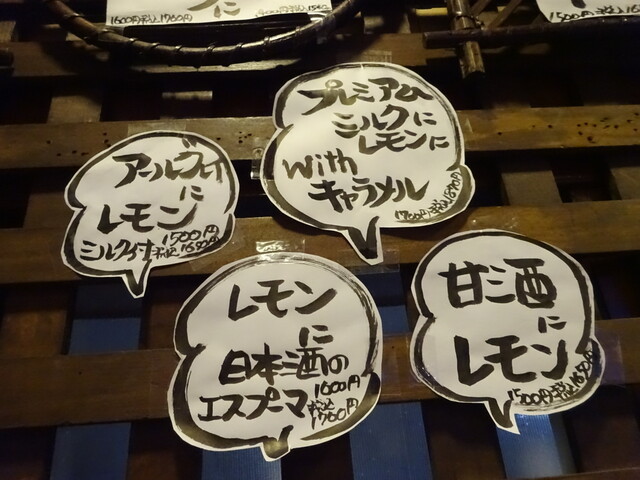 1600円税込1760円
に
1500円税込165
プレミアム
ミルクに
レモンに
with
キャラメル
1700円税込1870円
アールグレイ
に
レモン
ミルク付 1500円
税込1650円
レモン
に
日本酒の
エスプーマ
1600円
税込
1760円
甘酒
に
レモン
1500円税込1650円